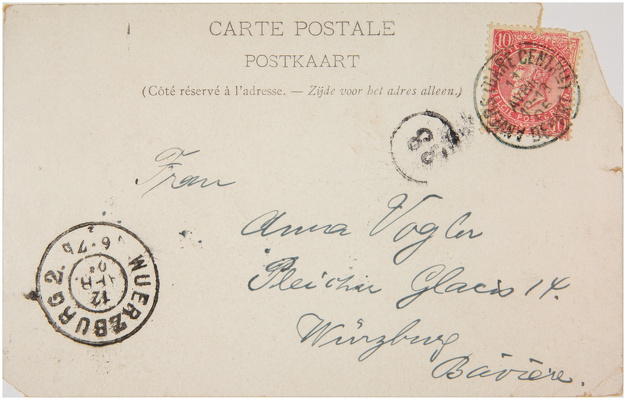 CARTE POSTALE
POSTKAART
(Côté réservé à l'adresse. — Zijde voor het adres alleen.)
10
ANVERS
Frau
Anna Vogler
Pleicher Glacis 14.
Würzburg
Bavière.
WUERZBURG 2.
12
APR.